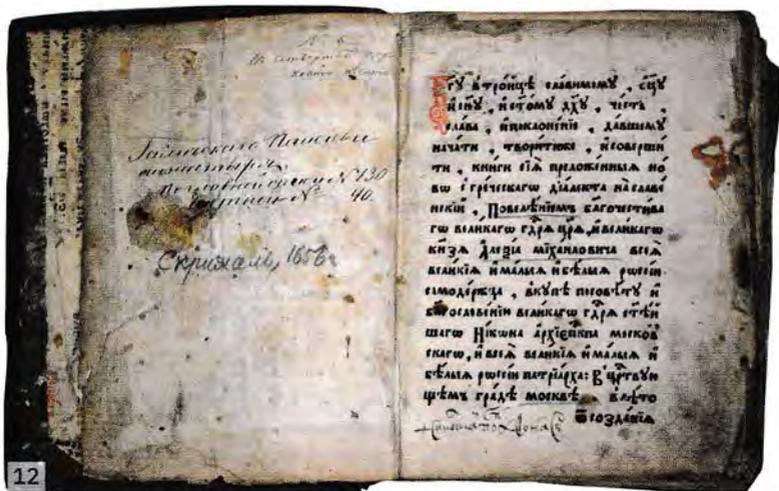 № 6
Галичскаго Паисіева
монастыря
№ 130
№ 40.
Скрижаль, 1656 г
Бг҃у в троицѣ славимому, оц҃у
и сн҃у, и ст҃ому дх҃у, честь,
слава, и поклоненіе, давшему
начати, творитиже, и соверши
ти, книги сїѧ преложенныѧ но
вѡ с греческагѡ дїалекта на славе
нскїи, Повелѣнїемъ бл҃гочестива
гѡ великагѡ гдⷭ҇рѧ цр҃ѧ, и великагѡ
кнѕ҃ѧ Алеѯїа мїхаиловича всеѧ
великїѧ и малыѧ и бѣлыѧ рѡссїи
самодержца, вкупѣ по совѣту и
бл҃гословенїи великагѡ гдⷭ҇рѧ ст҃ѣй
шагѡ Нїкѡна архїепⷭ҇кпа москов
скагѡ, и всеѧ великїѧ и малыѧ и
бѣлыѧ рѡссїи патрїарха: В црⷭ҇твую
щемъ градѣ москвѣ, в лѣто
ѿ созданїѧ
12